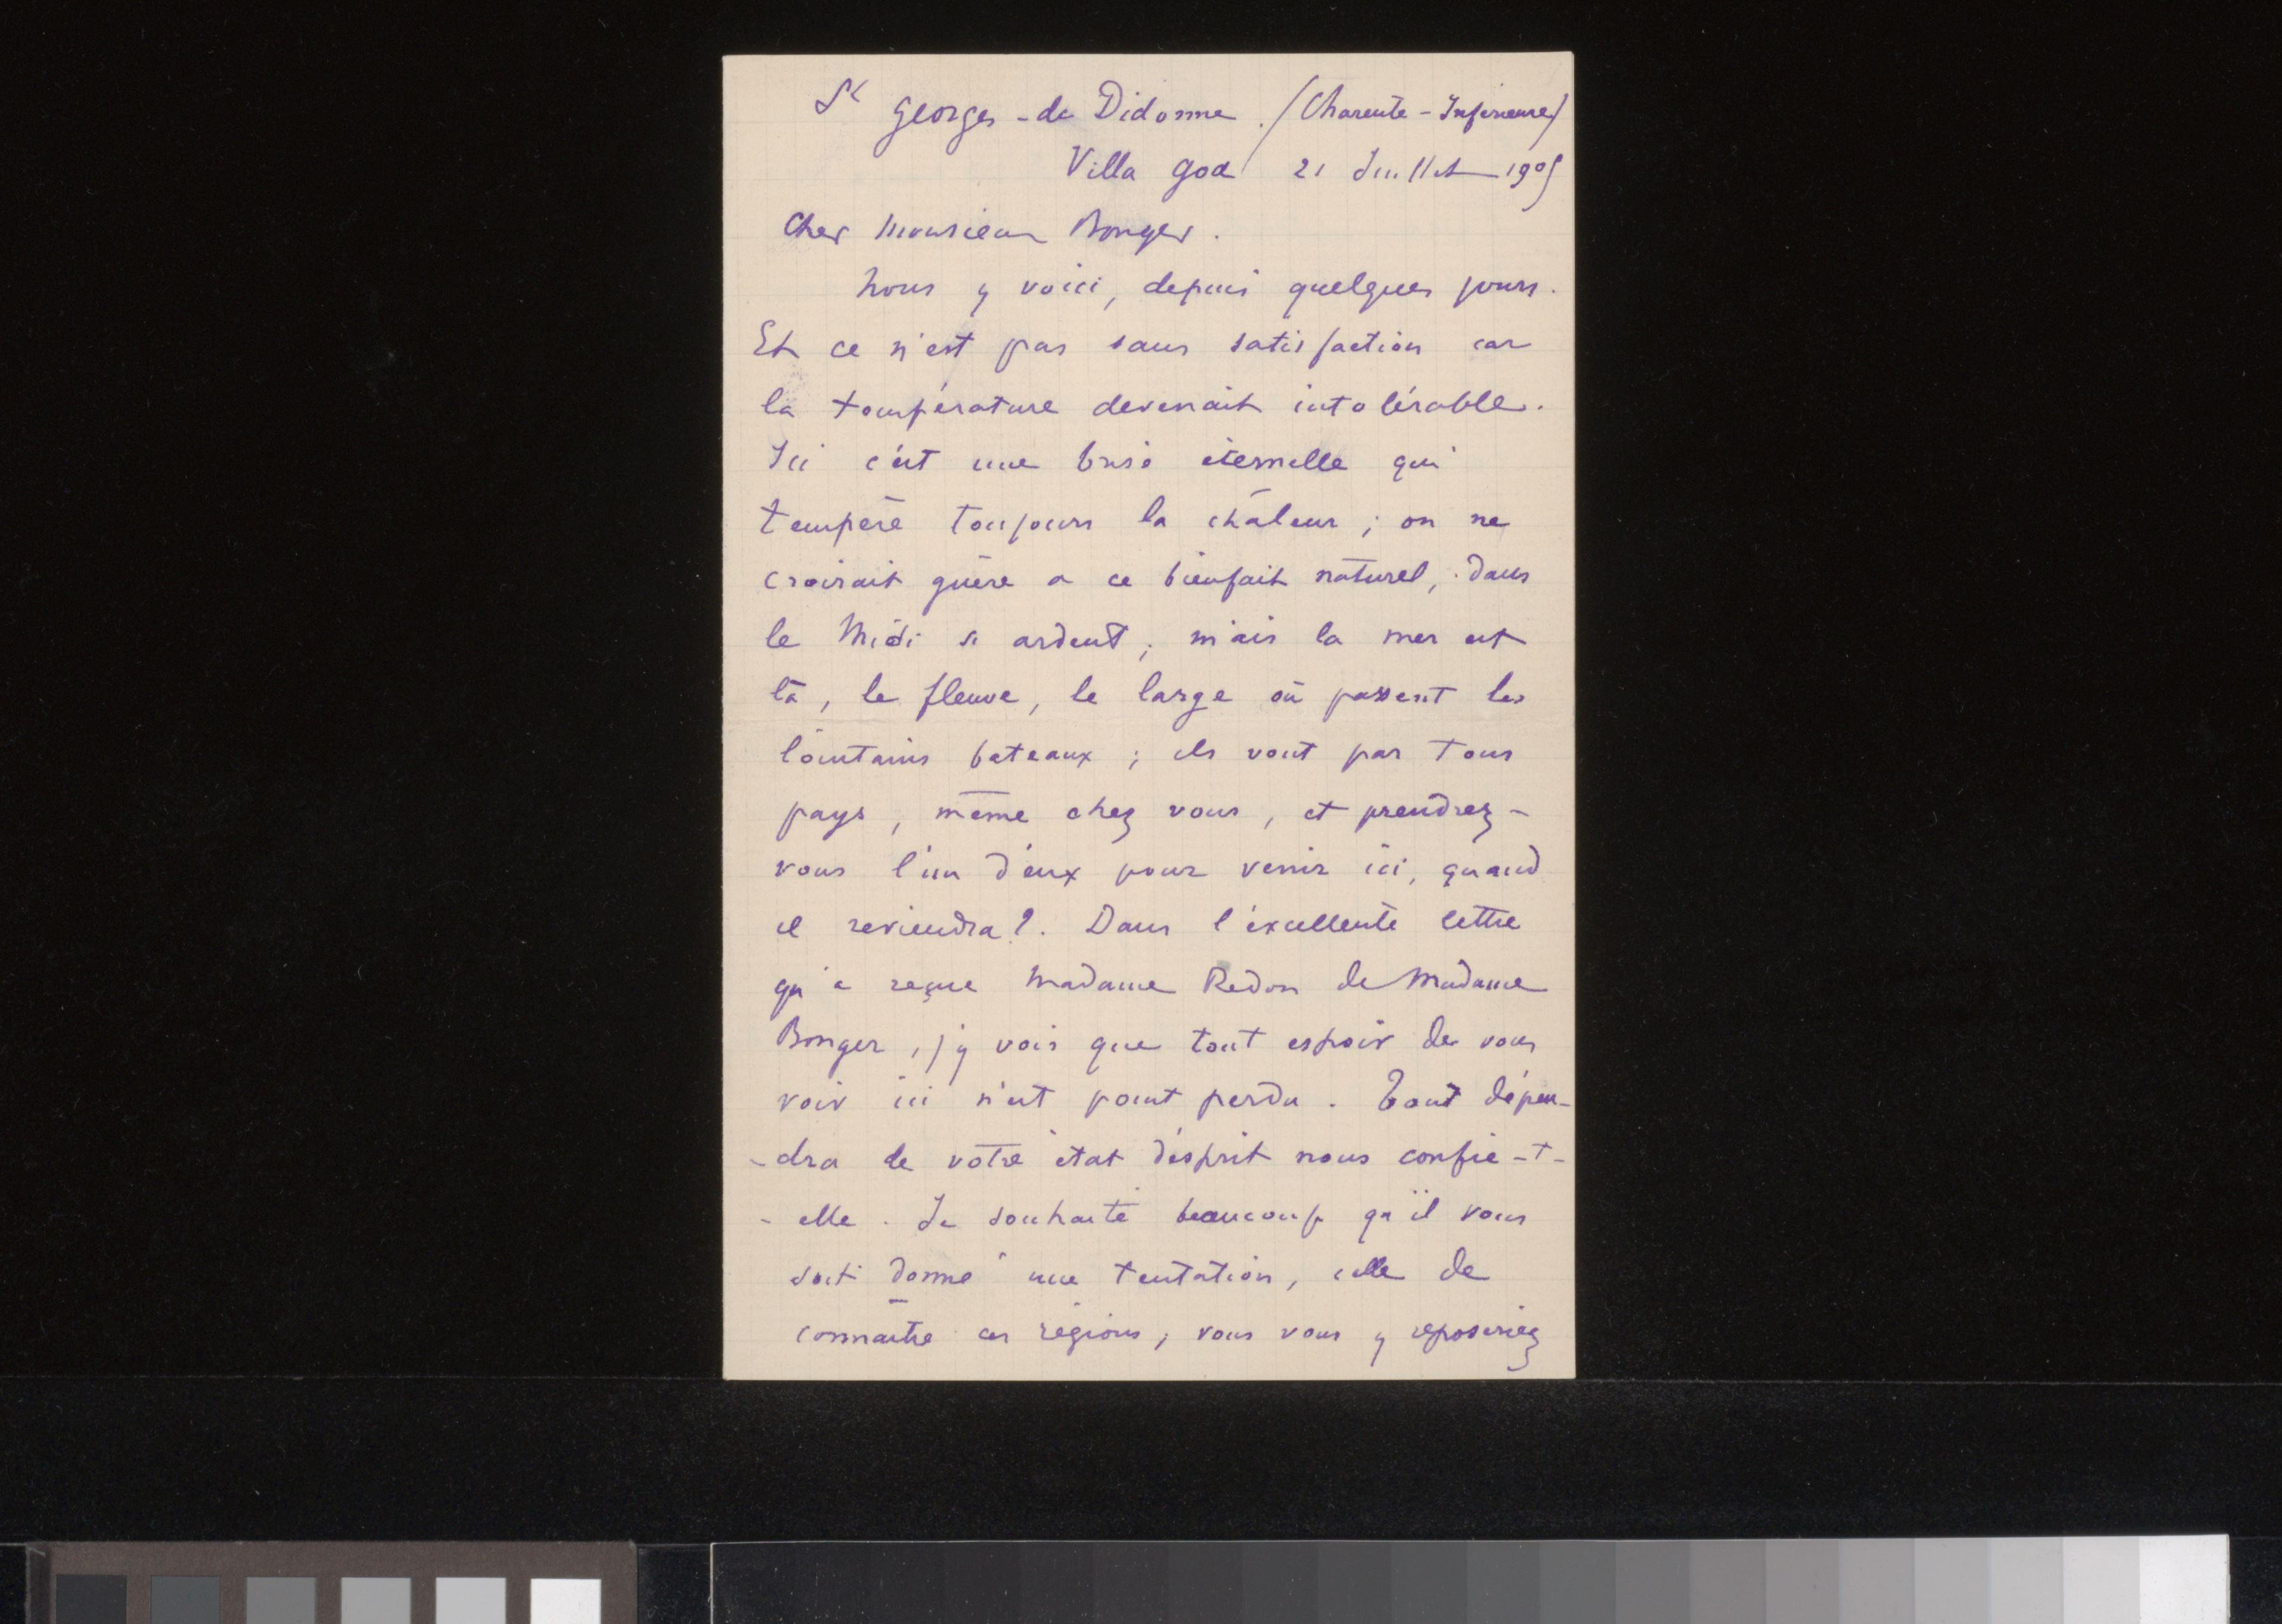 St Georges - de Didonne . (Charente - Inférieure)
Villa Goa 21 Juillet 1905
Cher Monsieur Bonger .
Nous y voici, depuis quelques jours.
Et ce n'est pas sans satisfaction car
la température devenait intolérable.
Ici c'est une brise éternelle qui
tempère toujours la chaleur ; on ne
croirait guère a ce bienfait naturel, dans
le Midi si ardent ; mais la mer est
là, le fleuve, le large où passent les
lointains bateaux ; ils vont par tous
pays, même chez vous, et prendrez-
vous l'un d'eux pour venir ici, quand
il reviendra ?. Dans l'excellente lettre
qu'a reçue Madame Redon de Madame
Bonger, j'y vois que tout espoir de vous
voir ici n'est point perdu . Tout dépen-
-dra de votre état d'esprit nous confie-t-
- elle . Je souhaite beaucoup qu'il vous
soit donné une tentation, celle de
connaître ces régions ; vous vous y reposeriez